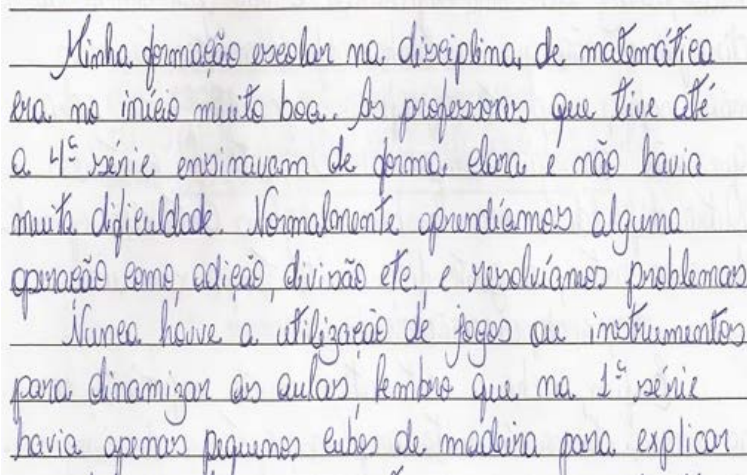 Minha formação escolar na disciplina de matemática
era no início muito boa. As professoras que tive até
a 4ª série ensinavam de forma clara e não havia
muita dificuldade. Normalmente aprendíamos alguma
operação como adição, divisão etc. e resolvíamos problemas
Nunca houve a utilização de jogos ou instrumentos
para dinamizar as aulas, lembro que na 1ª série
havia apenas pequenos cubos de madeira para explicar